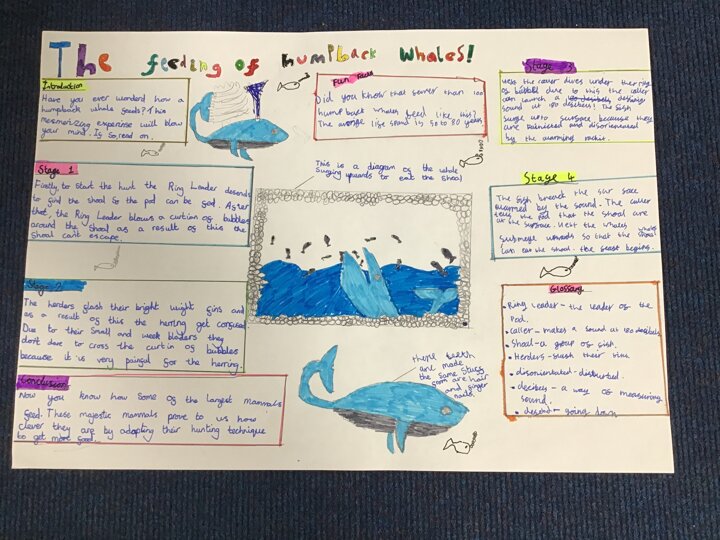 The feeding of humpback whales!
Introduction
Have you ever wonderd how a
humpback whale feeds? This
mesmerizing experinse will blow
your mind. If So, read on.
Fun Facts
Did you know that fewer than 100
humpback whales feed like this?
The average life span is 50 to 80 years
Stage 3
Next the caller dives under the ring
of bubbles due to this the caller
can launch a
sound at 180 decibels! The fish
surge upto surface because they
are and disorientated
by the alarming rackit.
Stage 1
Firstly to start the hunt the Ring Leader desends
to find the shoal So the pod can be fed. After
that, the Ring Leader blows a curtian of bubbles
around the shoal as a result of this the
shoal cant escape.
This is a diagram of the whale
Surging upwards to eat the shoal
Stage 4
The fish breach the sur face
alarmed by the sound. The caller
tells the pod that the shoal are
at the surface. Next the whales
Submerge upwards so that the whales
can eat the shoal. the feast begins.
Stage 2
The herders flash their bright wight fins and
as a result of this the herring get confused.
Due to their small and week bladers they
dont dare to cross the curtian of bubbles
because it is very painful for the herring.
Glossary
Ring Leader - the leader of the
Pod.
caller - makes a sound at 180 decibels
Shoal - a group of fish.
Herders - flash their fins
disorientated - disturbed.
decibels - a way of measuring
sound.
desend - going down
Conclusion
Now you know how some of the largest mammals
feed. These majestic mammals prove to us how
clever they are by adapting their hunting technique
to get more food.
there teeth
are made
the same stuff
from are hair
and finger
nails.